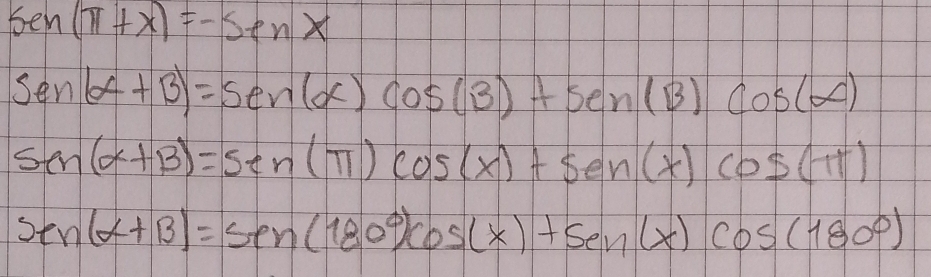 sen(π+x)=-sen x
sen(α+β)=sen(α) cos(β)+sen(β) cos(α)
sen(α+β)=sen(π) cos(x)+sen(x) cos(π)
sen(α+β)=sen(180°)cos(x)+sen(x) cos(180°)